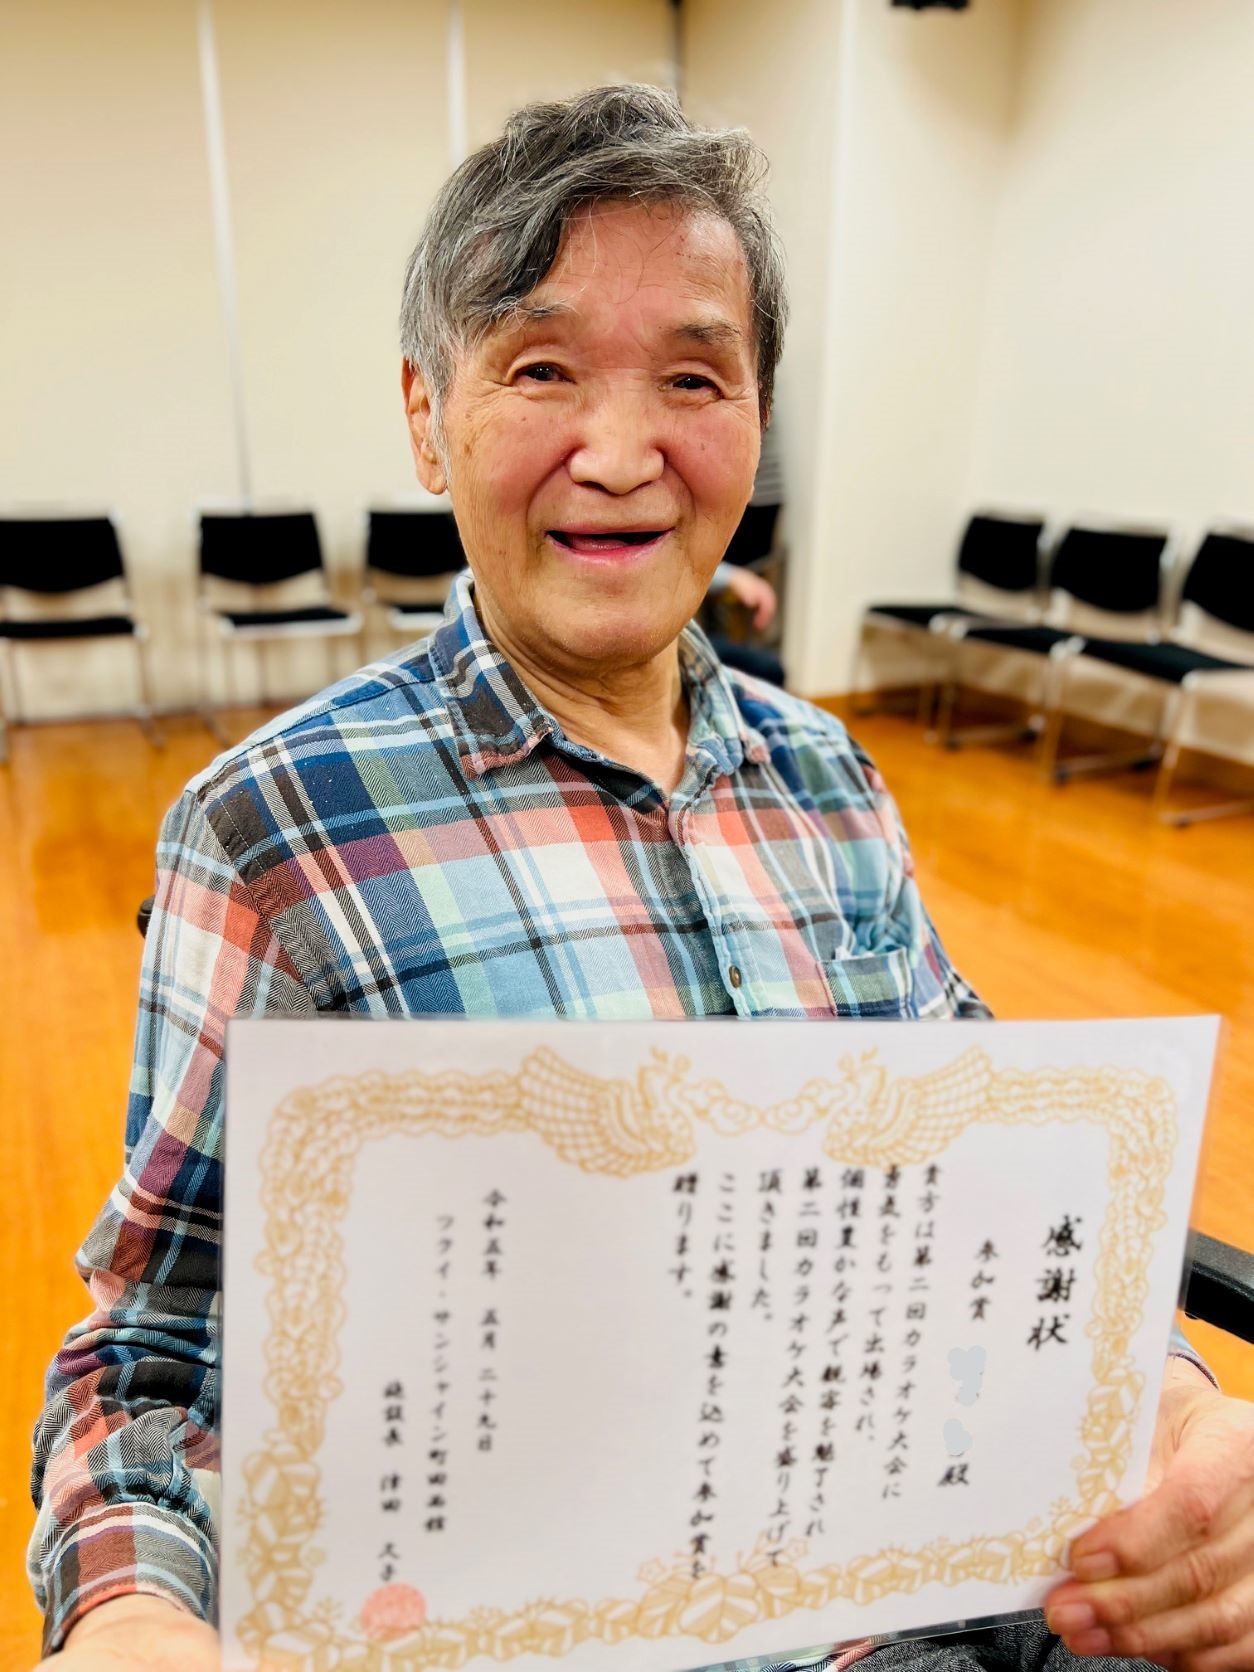 感謝状
参加賞
殿
貴方は第二回カラオケ大会に
勇気をもって出場され、
個性豊かな声で観客を魅了され
第二回カラオケ大会を盛り上げて
頂きました。
ここに感謝の意を込めて参加賞を
贈ります。
令和五年 五月 二十九日
フライ・サンシャイン町田西館
施設長 津田